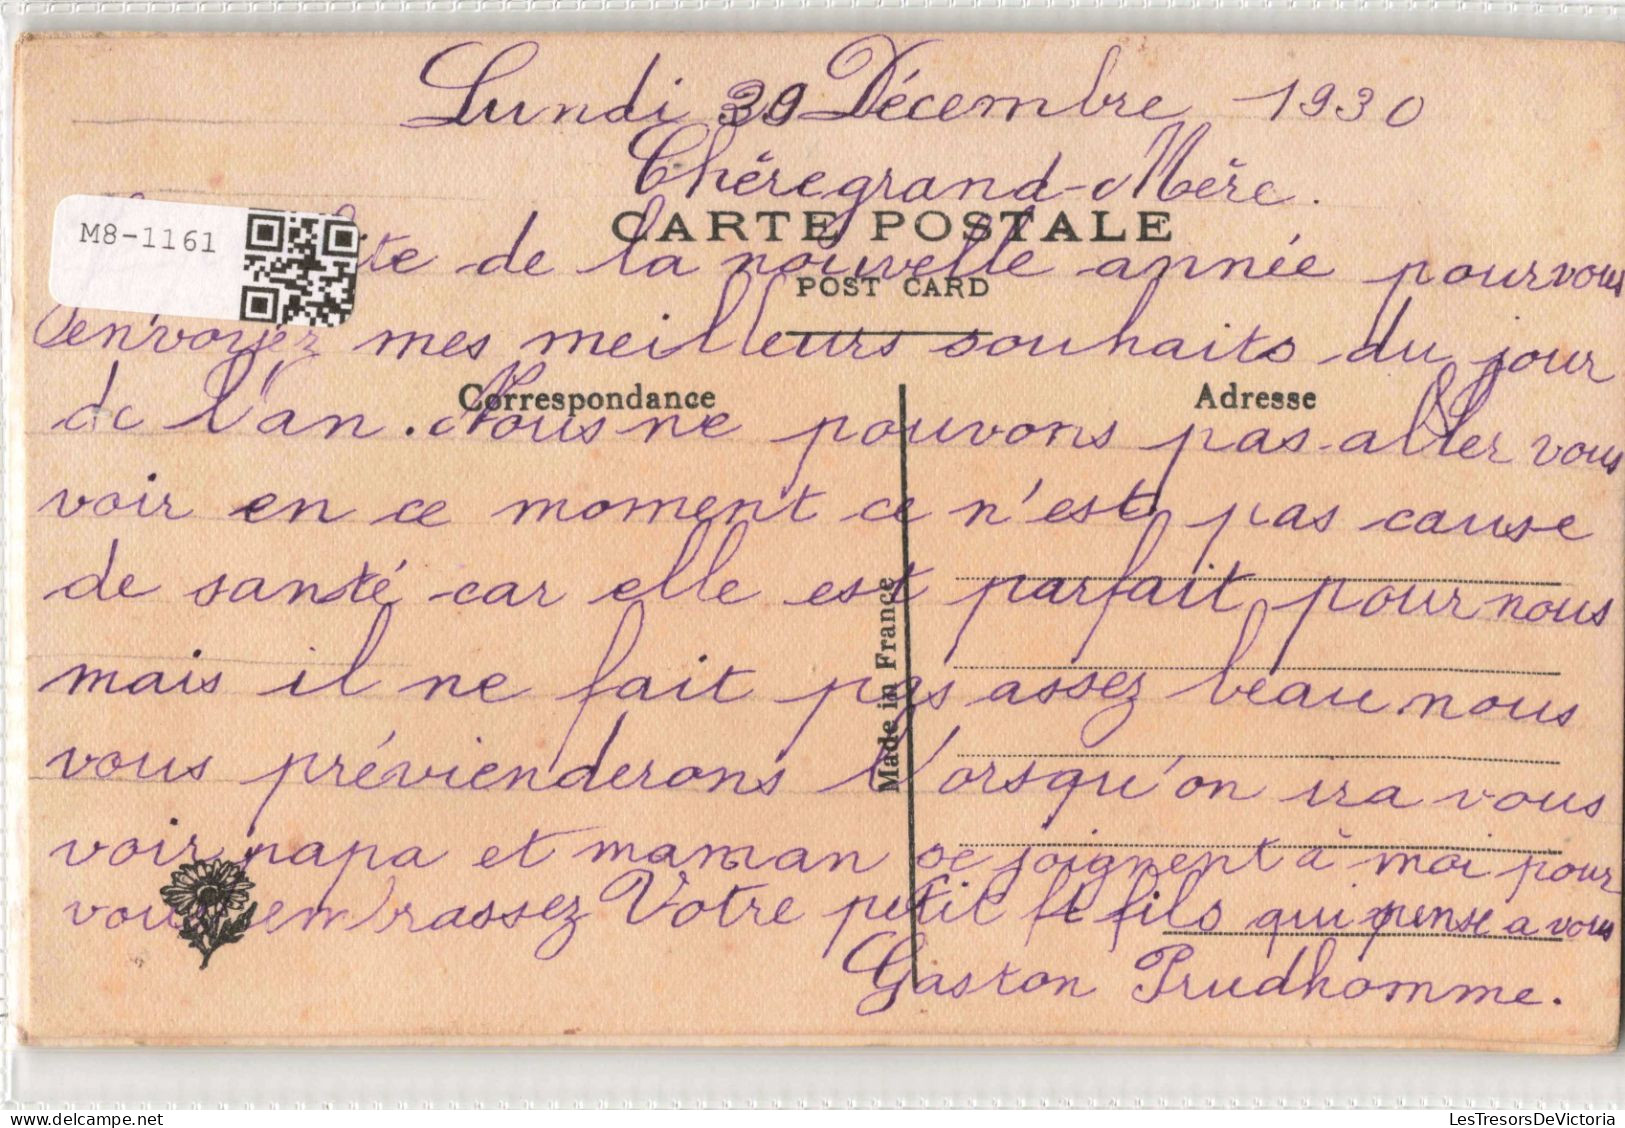 Lundi 29 Décembre 1930
Chère grand-Mère.
CARTE POSTALE
M8-1161
de la nouvelle année pour vous
POST CARD
envoyez mes meilleurs souhaits du jour
Correspondance
Adresse
de l'an. Nous ne pouvons pas aller vous
voir en ce moment ce n'est pas cause
de santé car elle est parfait pour nous
Made in France
mais il ne fait pas assez beau nous
vous prévienderons l'orsqu'on ira vous
voir papa et maman se joignent à moi pour
vous embrassez Votre petit fils qui pense a vous
Gaston Prudhomme.
LesTresorsDeVictoria